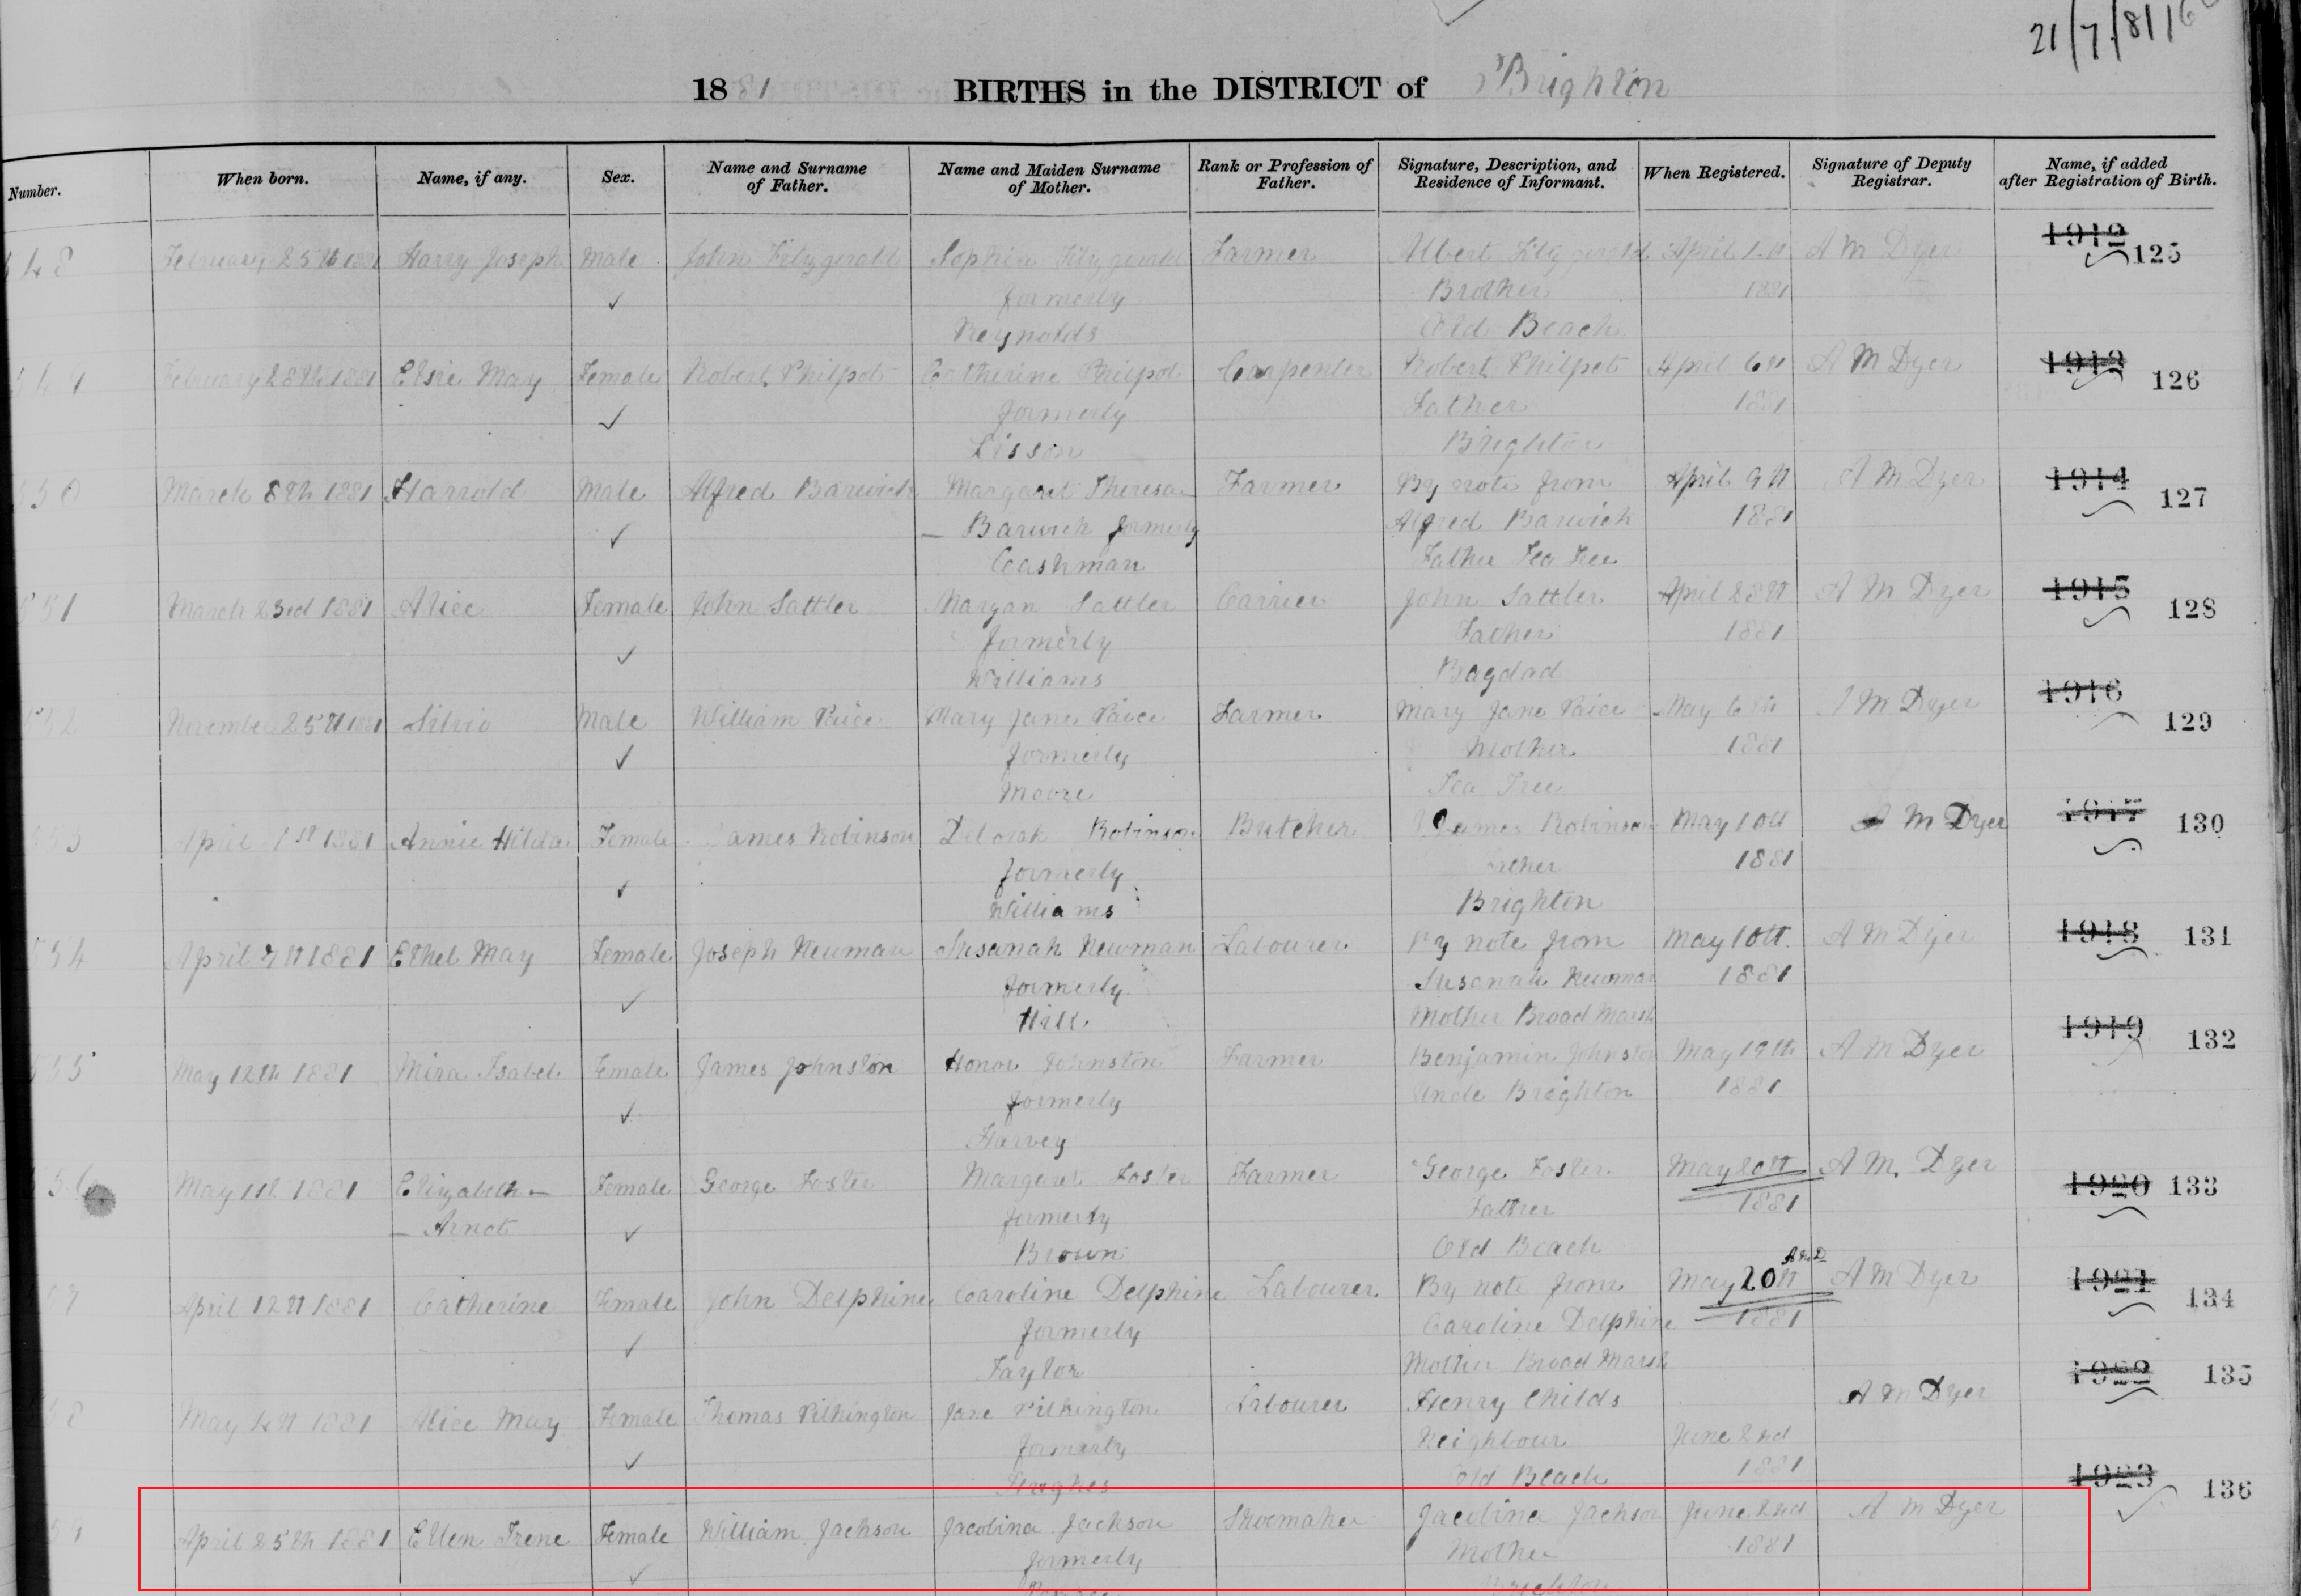 21/7/81
1881 BIRTHS in the DISTRICT of Brighton
Number. When born. Name, if any. Sex. Name and Surname of Father. Name and Maiden Surname of Mother. Rank or Profession of Father. Signature, Description, and Residence of Informant. When Registered. Signature of Deputy Registrar. Name, if added after Registration of Birth.
548 February 25th 1881 Harry Joseph Male John Fitzgerald Sophia Fitzgerald Farmer Albert Fitzgerald April 1st A M Dyer 1912 125
formerly Brother 1881
Reynolds Old Beach
549 February 28th 1881 Elsie May Female Robert Philpot Catherine Philpot Carpenter Robert Philpot April 6th A M Dyer 1913 126
formerly Father 1881
Lisson Brighton
550 March 8th 1881 Harrold Male Alfred Barwick Margaret Theresa Farmer By note from April 9th A M Dyer 1914 127
— Barwick formerly Alfred Barwick 1881
Cashman Father Tea Tree
551 March 23rd 1881 Alice Female John Sattler Margan Sattler Carrier John Sattler April 28th A M Dyer 1915 128
formerly Father 1881
Williams Bagdad
552 November 25th 1881 Silvio Male William Paice Mary Jane Paice Farmer Mary Jane Paice May 6th A M Dyer 1916 129
formerly Mother 1881
Moore Tea Tree
553 April 1st 1881 Annie Hilda Female James Robinson Deborah Robinson Butcher James Robinson May 10th A M Dyer 1917 130
formerly Father 1881
Williams Brighton
554 April 7th 1881 Ethel May Female Joseph Newman Susanah Newman Labourer By note from May 10th A M Dyer 1918 131
formerly Susanah Newman 1881
Hill Mother Broad Marsh
555 May 12th 1881 Mira Isabel Female James Johnston Honor Johnston Farmer Benjamin Johnston May 19th A M Dyer 1919 132
formerly Uncle Brighton 1881
Harvey
556 May 1st 1881 Elizabeth — Female George Foster Margaret Foster Farmer George Foster May 20th A M Dyer 1920 133
— Arnot formerly Father 1881
Brown Old Beach
A M D
57 April 12th 1881 Catherine Female John Delphine Caroline Delphine Labourer By note from May 20th A M Dyer 1921 134
formerly Caroline Delphine 1881
Taylor Mother Broad Marsh
58 May 1881 Alice May Female Thomas Pilkington Jane Pilkington Labourer Henry Childs A M Dyer 1922 135
formerly Neighbour June 2nd
Hughes Old Beach 1881
59 April 25th 1881 Ellen Irene Female William Jackson Jacobina Jackson Shoemaker Jacobina Jackson June 2nd A M Dyer 1923 136
formerly Mother 1881
Brighton